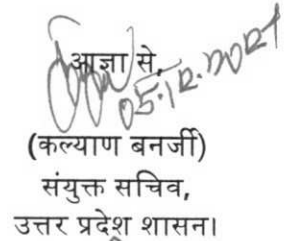 आज्ञा से,
05.12.2021
(कल्याण बनर्जी)
संयुक्त सचिव,
उत्तर प्रदेश शासन।